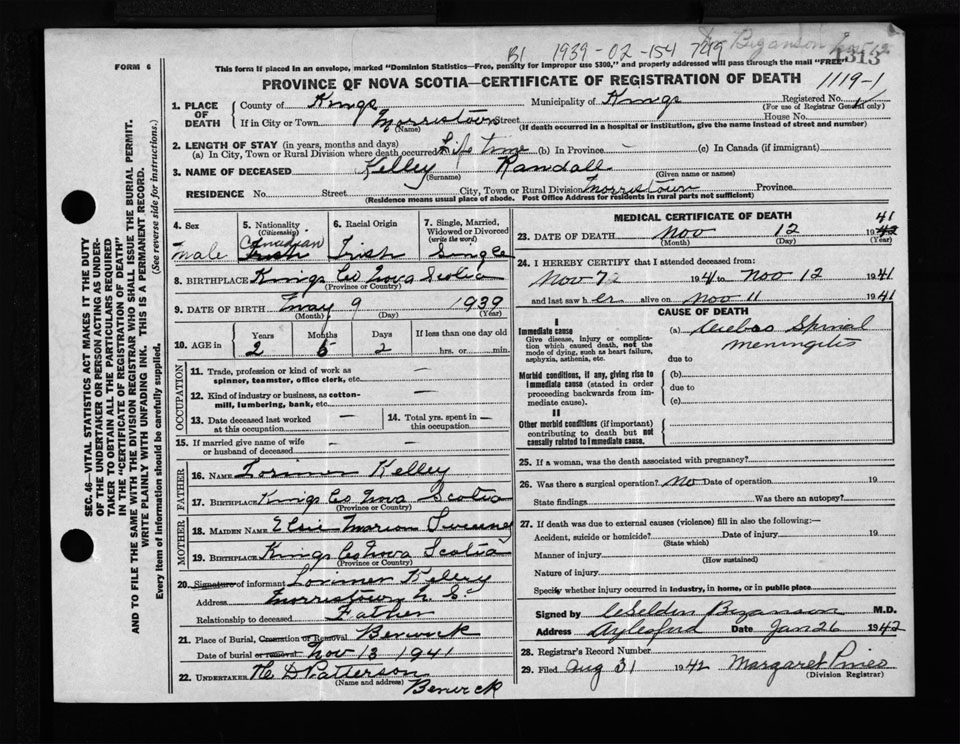 B1 1939-02-154 729
Dr Bezanson
313
FORM 6
This form if placed in an envelope, marked "Dominion Statistics—Free, penalty for improper use $300," and properly addressed will pass through the mail "FREE"
PROVINCE OF NOVA SCOTIA—CERTIFICATE OF REGISTRATION OF DEATH
1119-1
1. PLACE OF DEATH County of Kings Municipality of Kings Registered No.
(For use of Registrar General only)
If in City or Town Morristown Street House No.
(Name) (If death occurred in a hospital or institution, give the name instead of street and number)
2. LENGTH OF STAY (in years, months and days)
(a) In City, Town or Rural Division where death occurred Life time (b) In Province - (c) In Canada (if immigrant)
3. NAME OF DECEASED Kelley Randall
(Surname) (Given name or names)
RESIDENCE No. Street City, Town or Rural Division Morristown Province
(Residence means usual place of abode. Post Office Address for residents in rural parts not sufficient)
SEC. 46—VITAL STATISTICS ACT MAKES IT THE DUTY
OF THE UNDERTAKER OR PERSON ACTING AS UNDER-
TAKER TO OBTAIN ALL THE PARTICULARS REQUIRED
IN THE "CERTIFICATE OF REGISTRATION OF DEATH"
AND TO FILE THE SAME WITH THE DIVISION REGISTRAR WHO SHALL ISSUE THE BURIAL PERMIT.
WRITE PLAINLY WITH UNFADING INK. THIS IS A PERMANENT RECORD.
Every item of information should be carefully supplied. (See reverse side for instructions.)
4. Sex 5. Nationality (Citizenship) 6. Racial Origin 7. Single, Married, Widowed or Divorced (write the word)
male Canadian Irish Irish Single
8. BIRTHPLACE Kings Co Nova Scotia
(Province or Country)
9. DATE OF BIRTH May 9 1939
(Month) (Day) (Year)
10. AGE in Years Months Days If less than one day old
2 6 2 hrs. or min.
OCCUPATION
11. Trade, profession or kind of work as spinner, teamster, office clerk, etc. —
12. Kind of industry or business, as cotton-mill, lumbering, bank, etc. —
13. Date deceased last worked at this occupation — 14. Total yrs. spent in this occupation —
15. If married give name of wife or husband of deceased — —
FATHER
16. NAME Lorimer Kelley
17. BIRTHPLACE Kings Co Nova Scotia
(Province or Country)
MOTHER
18. MAIDEN NAME Elsie Marion
19. BIRTHPLACE Kings Co Nova Scotia
(Province or Country)
20. Signature of informant Lorimer Kelley
Address Morristown N.S.
Relationship to deceased Father
21. Place of Burial, Cremation or Removal Berwick
Date of burial or removal Nov 13 1941
22. UNDERTAKER D Patterson
(Name and address) Berwick
MEDICAL CERTIFICATE OF DEATH
41
23. DATE OF DEATH Nov 12 1942
(Month) (Day) (Year)
24. I HEREBY CERTIFY that I attended deceased from:
Nov 7 1941 to Nov 12 1941
and last saw h er alive on Nov 11 1941
CAUSE OF DEATH
I
Immediate cause (a) Cerebro Spinal
Give disease, injury or complica- Meningitis
tion which caused death, not the
mode of dying, such as heart failure,
asphyxia, asthenia, etc. due to
Morbid conditions, if any, giving rise to (b)
immediate cause (stated in order due to
proceeding backwards from im-
mediate cause). (c)
II
Other morbid conditions (if important)
contributing to death but not
causally related to immediate cause.
25. If a woman, was the death associated with pregnancy?
26. Was there a surgical operation? no Date of operation 19
State findings Was there an autopsy?
27. If death was due to external causes (violence) fill in also the following:—
Accident, suicide or homicide? Date of injury 19
(State which)
Manner of injury
(How sustained)
Nature of injury
Specify whether injury occurred in industry, in home, or in public place
Signed by C Selden Bezanson M.D.
Address Aylesford Date Jan 26 1942
28. Registrar's Record Number
29. Filed Aug 31 1942 Margaret
(Division Registrar)